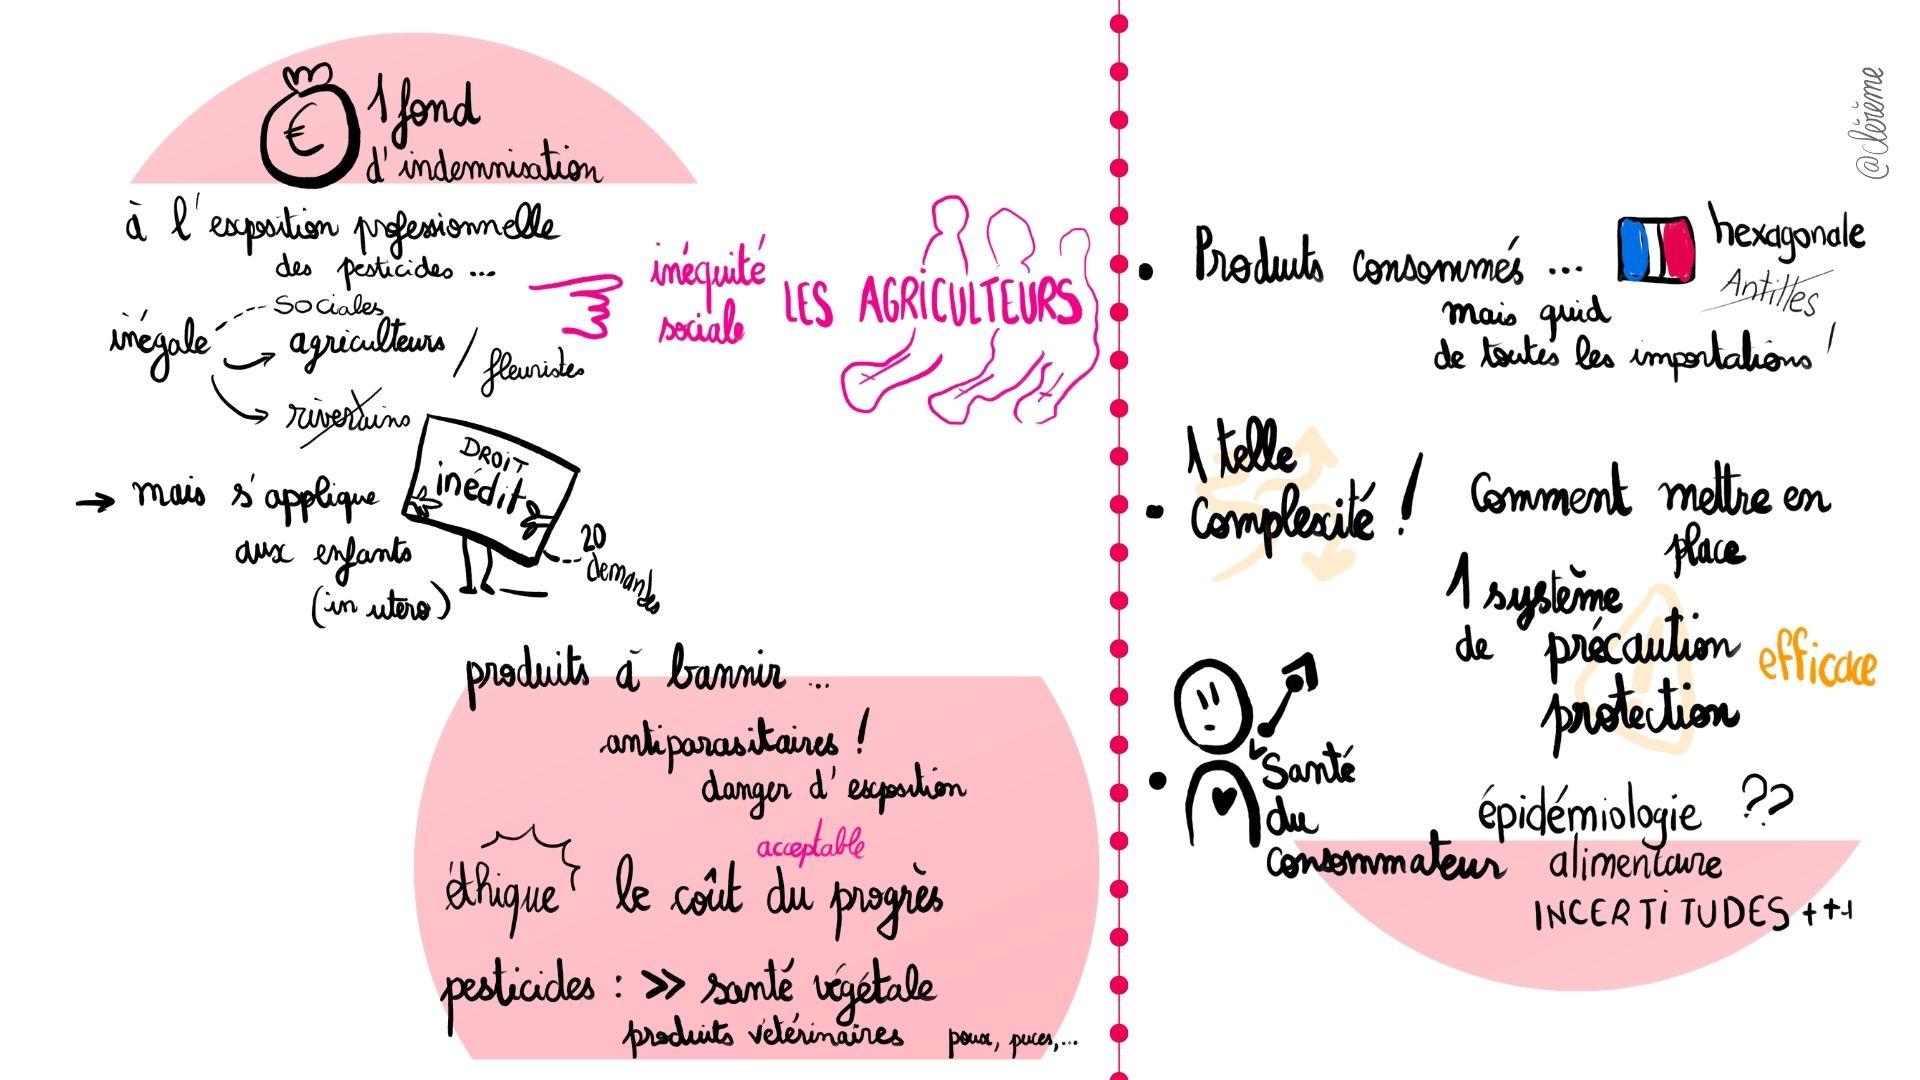 €
1 fond
d'indemnisation
à l'exposition professionnelle
des pesticides ...
inégale
sociales
agriculteurs / fleuristes
riverains
→ mais s'applique
aux enfants
(in utero)
DROIT
inédit
20
demandes
inéquité
sociale
LES AGRICULTEURS
produits à bannir ...
antiparasitaires !
danger d'exposition
acceptable
éthique le coût du progrès
pesticides : >> santé végétale
produits vétérinaires poux, puces,...
@clérème
• Produits consommés ... hexagonale
Antilles
mais quid
de toutes les importations !
• 1 telle
Complexité !
Comment mettre en
place
1 système
de précaution
protection
efficace
• Santé
du
consommateur
épidémiologie ??
alimentaire
INCERTITUDES +++